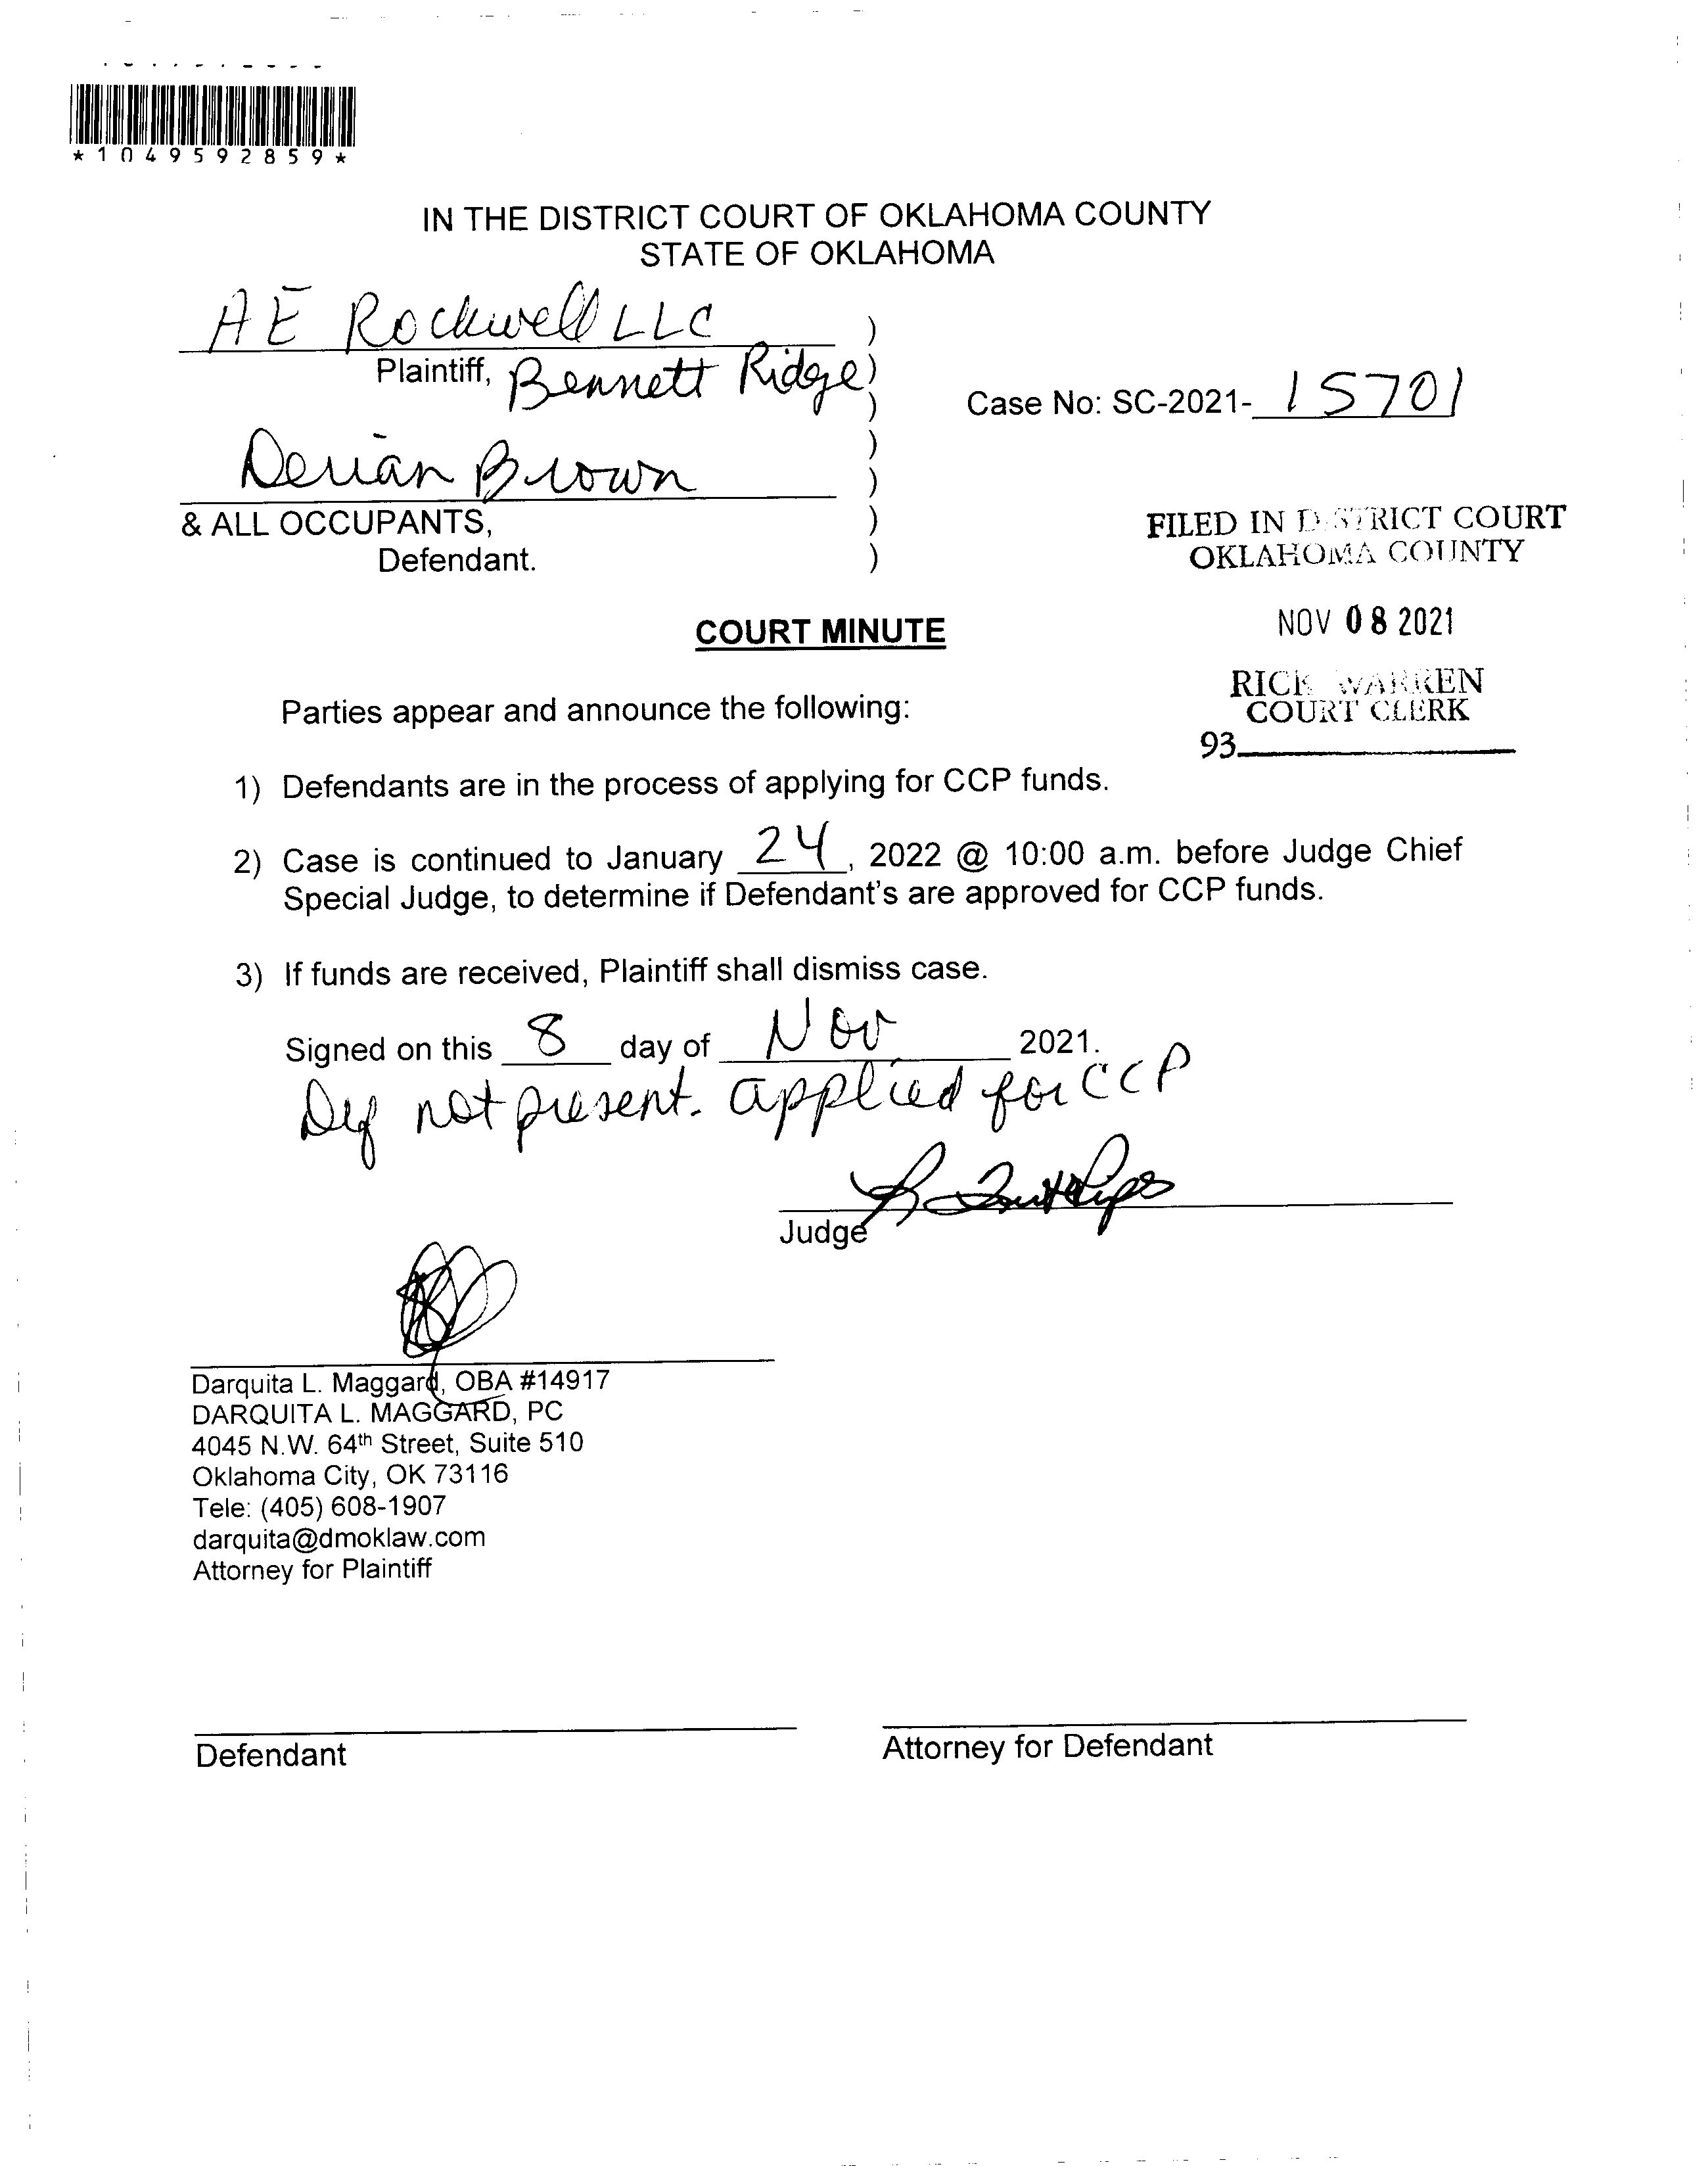 *1049592859*
IN THE DISTRICT COURT OF OKLAHOMA COUNTY
STATE OF OKLAHOMA
AE Rockwell LLC )
Plaintiff, Bennett Ridge )
) Case No: SC-2021- 15701
)
Derian Brown )
& ALL OCCUPANTS, )
Defendant. )
FILED IN DISTRICT COURT
OKLAHOMA COUNTY
NOV 08 2021
RICK WARREN
COURT CLERK
93
COURT MINUTE
Parties appear and announce the following:
1) Defendants are in the process of applying for CCP funds.
2) Case is continued to January 24, 2022 @ 10:00 a.m. before Judge Chief
Special Judge, to determine if Defendant's are approved for CCP funds.
3) If funds are received, Plaintiff shall dismiss case.
Signed on this 8 day of Nov 2021.
Def not present. applied for CCP
Judge
Darquita L. Maggard, OBA #14917
DARQUITA L. MAGGARD, PC
4045 N.W. 64th Street, Suite 510
Oklahoma City, OK 73116
Tele: (405) 608-1907
darquita@dmoklaw.com
Attorney for Plaintiff
Defendant
Attorney for Defendant